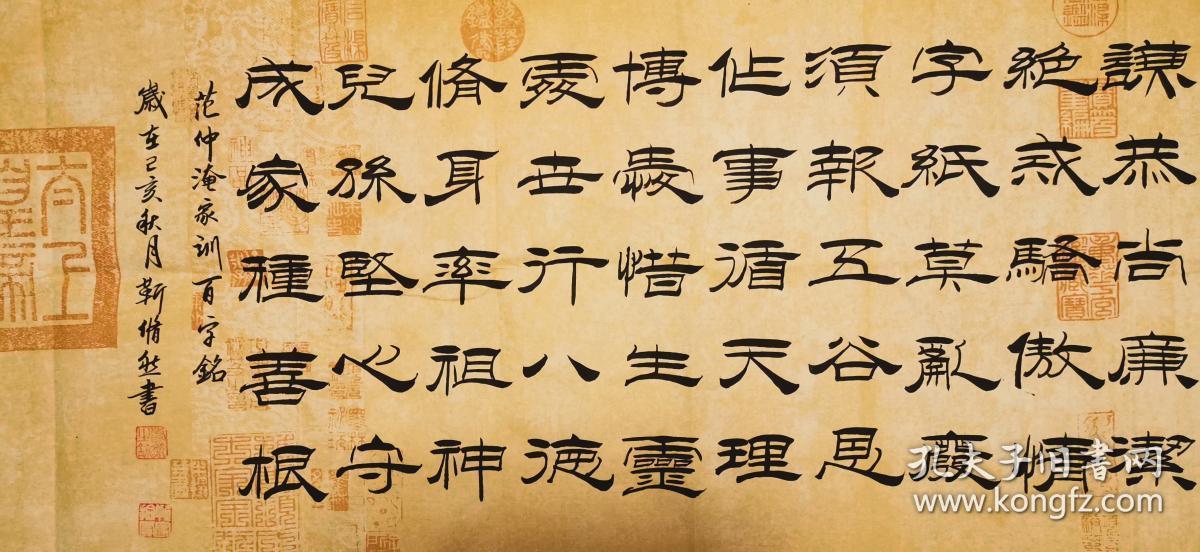 謙恭尚廉潔
絶戒驕傲情
字紙莫亂廢
須報五谷恩
作事循天理
博愛惜生靈
處世行八德
脩身率祖神
兒孫堅心守
成家種善根
范仲淹家訓百字銘
歲在己亥秋月靳脩書
孔夫子旧书网
www.kongfz.com